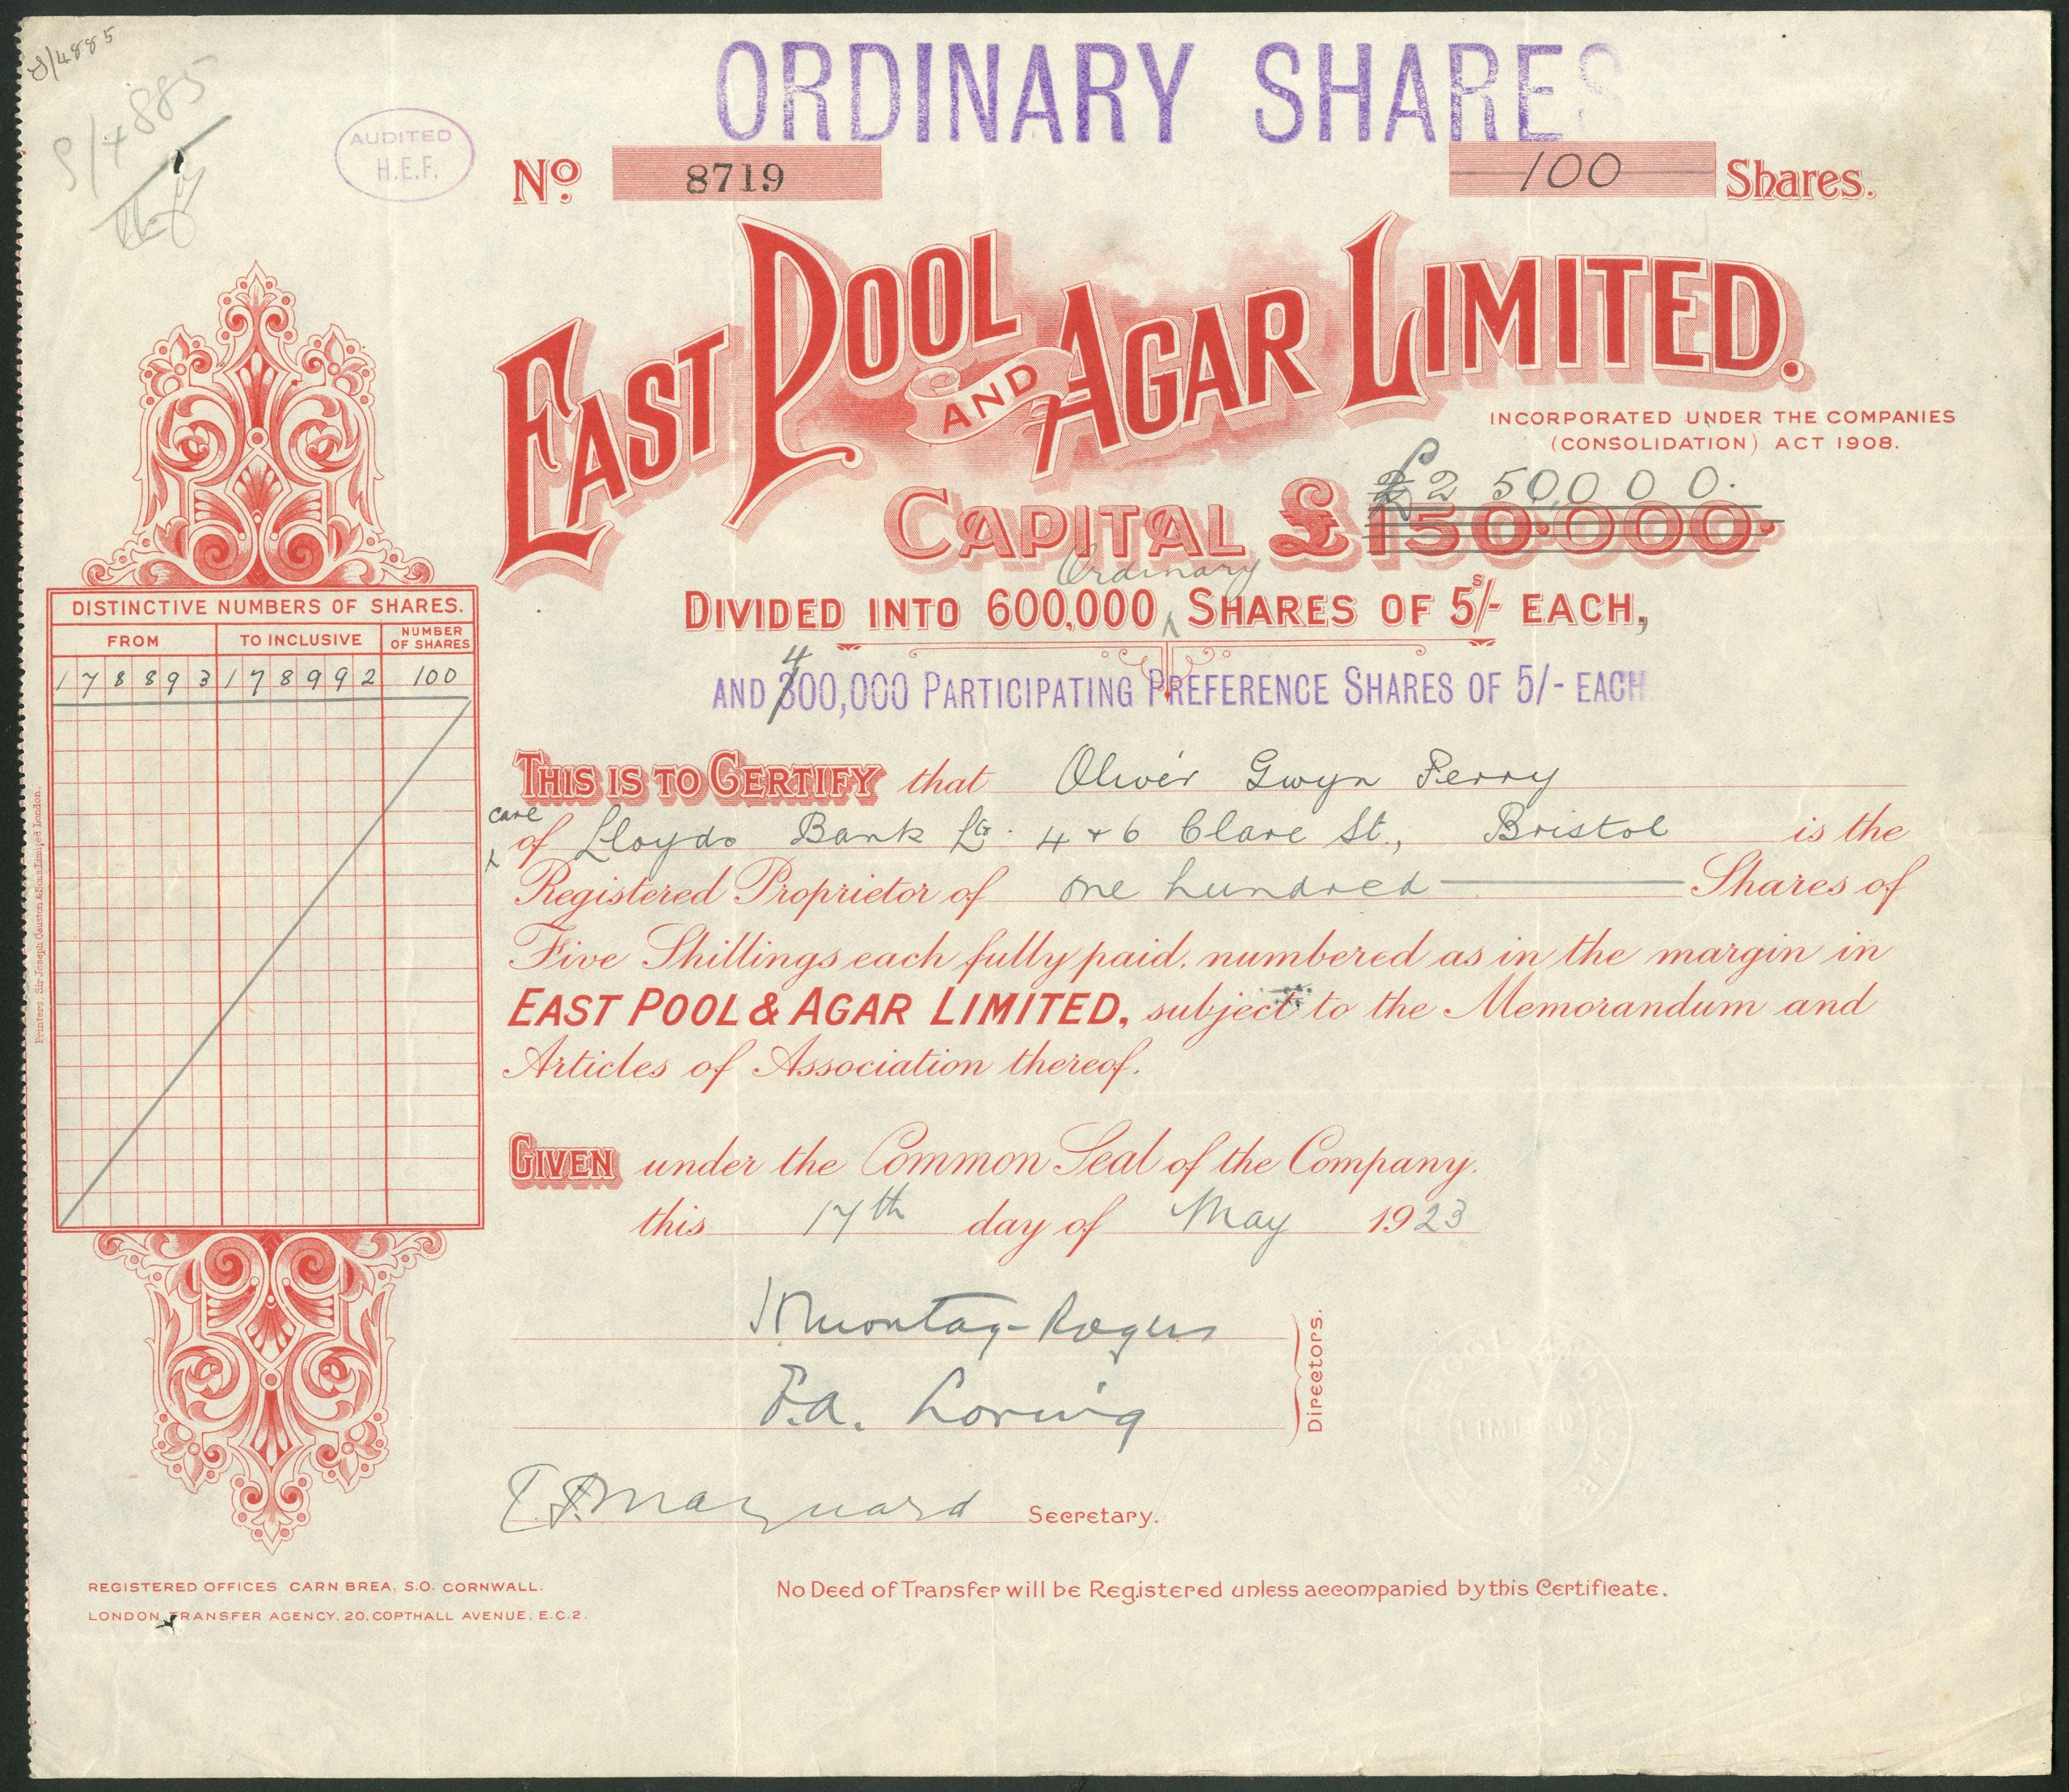 S/4885
S/4885
AUDITED
H.E.F.
ORDINARY SHARES
No. 8719
100 Shares.
EAST POOL AND AGAR LIMITED.
INCORPORATED UNDER THE COMPANIES
(CONSOLIDATION) ACT 1908.
£250,000.
CAPITAL £150.000.
Ordinary
DIVIDED INTO 600,000 SHARES OF 5s/- EACH,
4
AND 300,000 PARTICIPATING PREFERENCE SHARES OF 5/- EACH
DISTINCTIVE NUMBERS OF SHARES.
FROM TO INCLUSIVE NUMBER OF SHARES
178893 178992 100
THIS IS TO CERTIFY that Oliver Gwyn Perry
care
of Lloyds Bank Ltd. 4 & 6 Clare St., Bristol is the
Registered Proprietor of one hundred Shares of
Five Shillings each fully paid, numbered as in the margin in
EAST POOL & AGAR LIMITED, subject to the Memorandum and
Articles of Association thereof.
GIVEN under the Common Seal of the Company.
this 17th day of May 1923
Montag-Rogers
F.A. Loring
Directors.
Maynard Secretary.
REGISTERED OFFICES CARN BREA, S.O. CORNWALL.
LONDON TRANSFER AGENCY, 20, COPTHALL AVENUE, E.C.2.
No Deed of Transfer will be Registered unless accompanied by this Certificate.
Printers, Sir Joseph Causton & Sons Limited London.
LIMITED